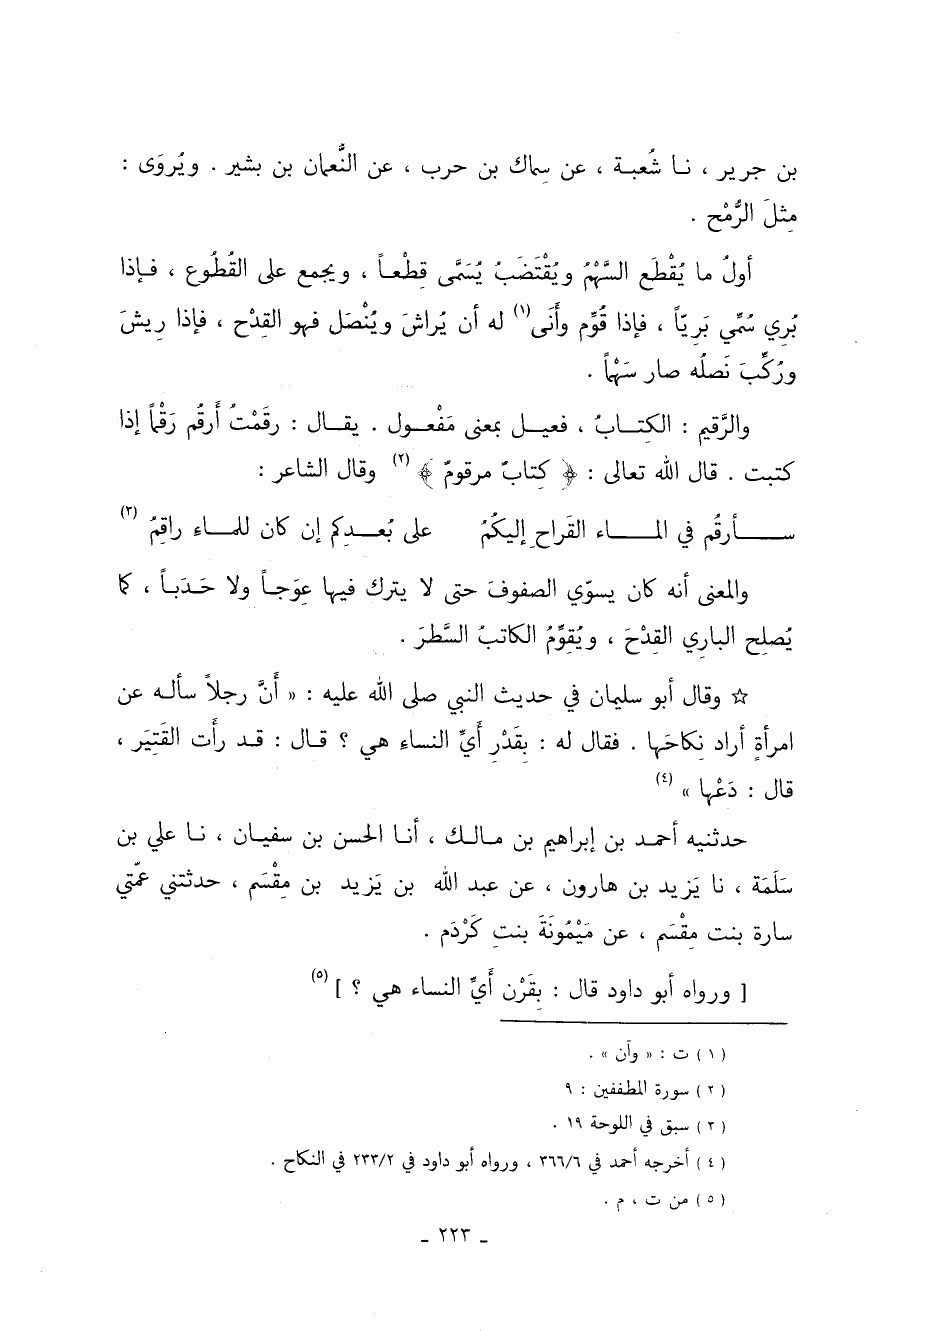 بن جرير ، نـا شُعبـة ، عن سِماك بن حرب ، عن النُّعمان بن بشير . ويُروَى :
مِثلَ الرُّمْح .
أولُ ما يُقْطَع السَّهْمُ ويُقْتَضَبُ يُسَمَّى قِطْعـاً ، ويجمع على القُطُوع ، فـإذا
بُرِي سُمِّي بَرِيّاً ، فإذا قُوِّم وأَنَى(١) له أن يُراشَ ويُنْصَل فهو القِدْح ، فإذا رِيشَ
ورُكِّبَ نَصلُه صار سَهْماً .
والرَّقيم : الكتـــابُ ، فعيـل بمعنى مَفْعـول . يقــال : رقَمْتُ أرقُم رَقْماً إذا
كتبت . قال الله تعالى : ﴿ كتابٌ مرقومٌ ﴾ (٢) وقال الشاعر :
ســـأرقُم في المـــاء القَراحِ إليكُمُ على بُعـدِكم إن كان للمـاء راقِمُ (٣)
والمعنى أنه كان يسوّي الصفوفَ حتى لا يترك فيها عِوَجـاً ولا حَـدَبـاً ، كما
يُصلِح الباري القِدْحَ ، ويُقوِّمُ الكاتبُ السَّطرَ .
☆ وقال أبو سليمان في حديث النبي صلى الله عليه : « أنَّ رجلاً سألـه عن
امرأةٍ أراد نِكاحَها . فقال له : بِقَدْرِ أَيِّ النساء هي ؟ قـال : قـد رأت القَتِيَر ،
قال : دَعْها » (٤)
حدثنيه أحمـد بن إبراهيم بن مـالـك ، أنـا الحسن بن سفيـان ، نـا علي بن
سَلَمَة ، نا يَزيد بن هارون ، عن عبد الله بن يَزيد بن مِقْسَم ، حدثتني عمّتي
سارة بنت مِقْسَم ، عن مَيْمُونَةَ بنتِ كَرْدَم .
[ ورواه أبو داود قال : بِقَرْن أَيِّ النساء هي ؟ ] (٥)
( ١ ) ت : « وآن » .
( ٢ ) سورة المطففين : ٩
( ٣ ) سبق في اللوحة ١٩ .
( ٤ ) أخرجه أحمد في ٣٦٦/٦ ، ورواه أبو داود في ٢٣٣/٢ في النكاح .
( ٥ ) من ت ، م .
ـ ٢٢٣ ـ